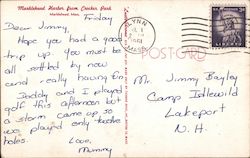 Marblehead Harbor from Crocker Park
Marblehead, Mass.
Friday
Dear Jimmy,
Hope you had a good
trip up. You must be
all settled by now
and really having fun.
Daddy and I played
golf this afternoon but
a storm came up so
we played only twelve
holes.
Love,
Mummy
LYNN
MASS.
POST CARD
Mr. Jimmy Bayley
Camp Idlewild
Lakeport
N.H.